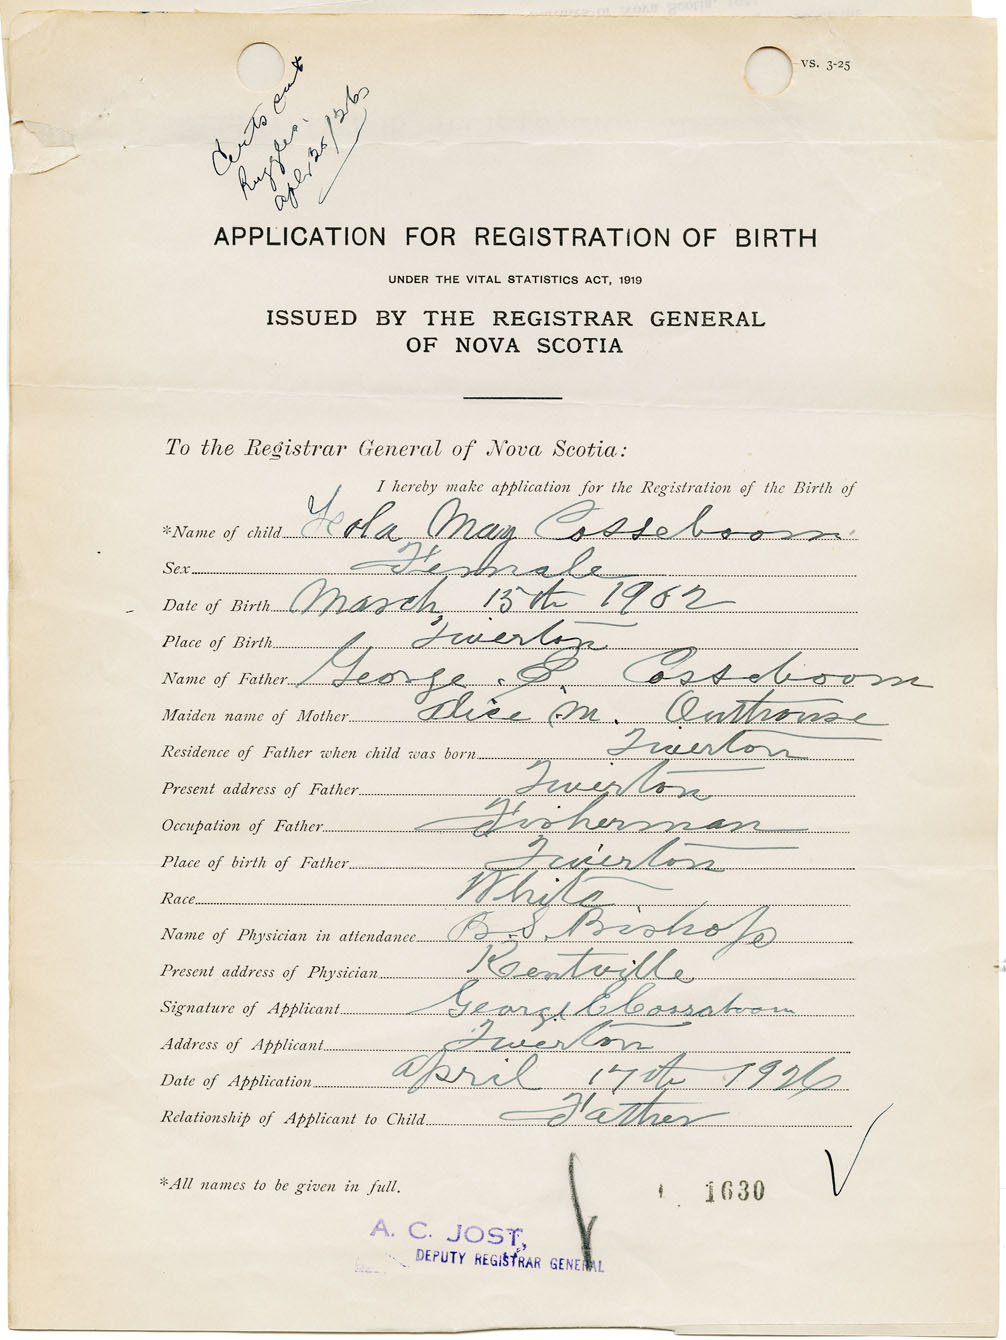 VS. 3-25
Certs cut
Ruggles.
Apl 26/26
APPLICATION FOR REGISTRATION OF BIRTH
UNDER THE VITAL STATISTICS ACT, 1919
ISSUED BY THE REGISTRAR GENERAL
OF NOVA SCOTIA
To the Registrar General of Nova Scotia:
I hereby make application for the Registration of the Birth of
*Name of child May Cosseboom
Sex Female
Date of Birth March 15th 1902
Place of Birth Tiverton
Name of Father George. E. Cosseboom
Maiden name of Mother Alice M. Outhouse
Residence of Father when child was born Tiverton
Present address of Father Tiverton
Occupation of Father Fisherman
Place of birth of Father Tiverton
Race White
Name of Physician in attendance B. S. Bishop
Present address of Physician Kentville
Signature of Applicant George E Cossaboom
Address of Applicant Tiverton
Date of Application April 17th 1926
Relationship of Applicant to Child Father
*All names to be given in full.
1630
A. C. JOST,
DEPUTY REGISTRAR GENERAL